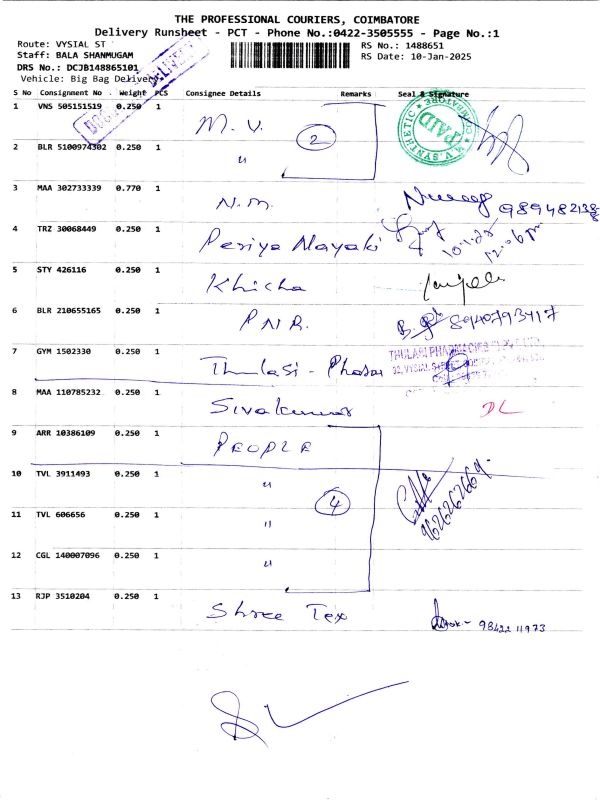 THE PROFESSIONAL COURIERS, COIMBATORE
Delivery Runsheet - PCT - Phone No.:0422-3505555 - Page No.:1
Route: VYSIAL ST
RS No.: 1488651
Staff: BALA SHANMUGAM
RS Date: 10-Jan-2025
DRS No.: DCJB148865101
Vehicle: Big Bag Delivery
S No Consignment No Weight PCS Consignee Details Remarks Seal & Signature
1 VNS 505151519 0.250 1 M. V. 2
M.V. SYNTHETIC PAID
2 BLR 5100974302 0.250 1 "
3 MAA 302733339 0.770 1 N. M.
4 TRZ 30068449 0.250 1 Periya Nayaki 10.1.25
12.06 pm
5 STY 426116 0.250 1 Khicha
6 BLR 210655165 0.250 1 P N R. 8940793417
7 GYM 1502330 0.250 1 Thulasi - Pharma
THULASI PHARMACIES
8 MAA 110785232 0.250 1 Sivakumar DL
9 ARR 10386109 0.250 1 PEOPLE
10 TVL 3911493 0.250 1 " 4
9626262669
11 TVL 606656 0.250 1 "
12 CGL 140007096 0.250 1 "
13 RJP 3510204 0.250 1 Shree Tex 98422 11973